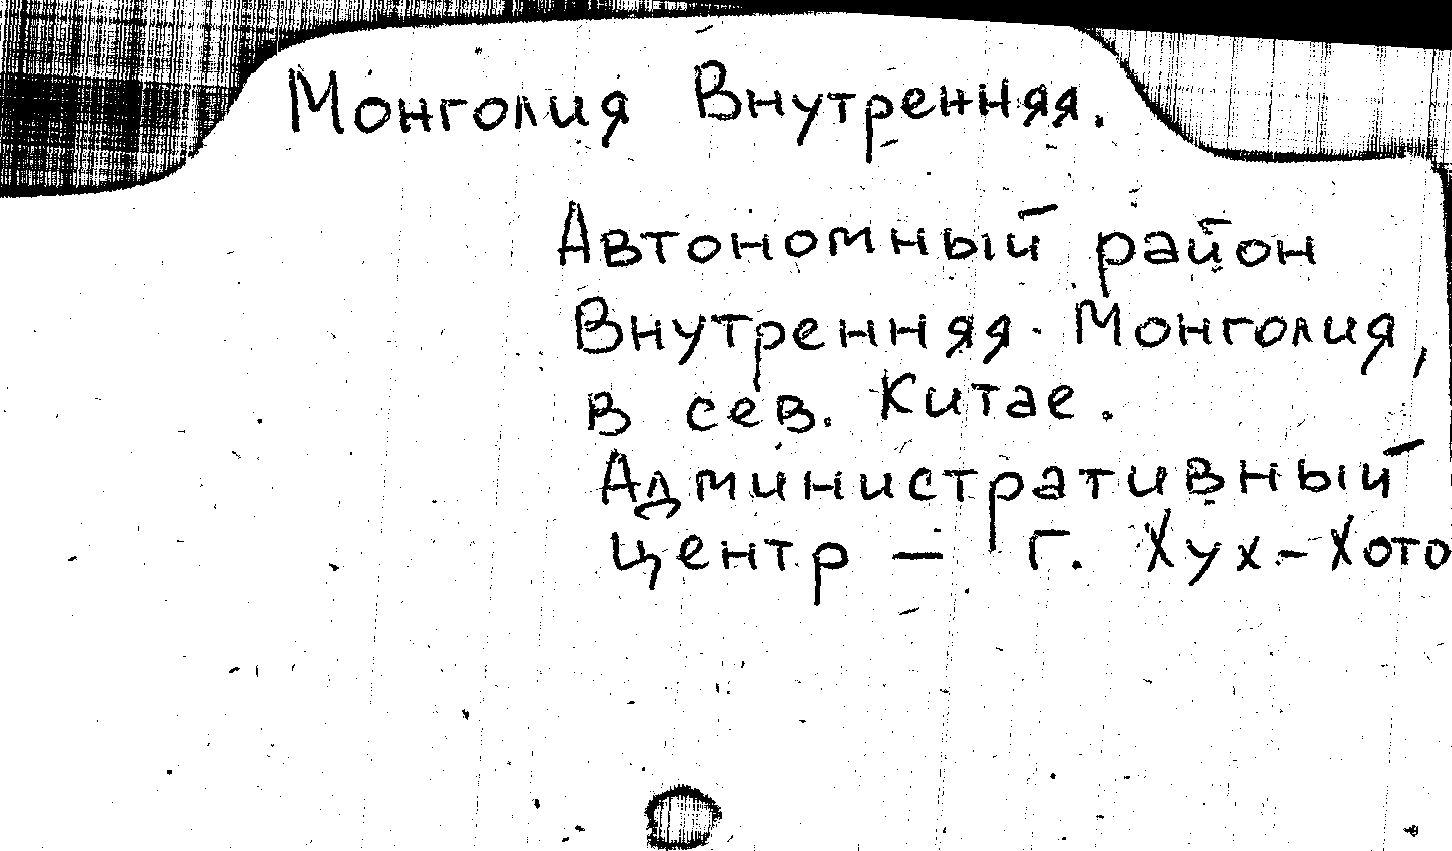 Монголия Внутренняя.
Автономный район
Внутренняя Монголия,
в сев. Китае.
Административный
центр – г. Хух-Хото